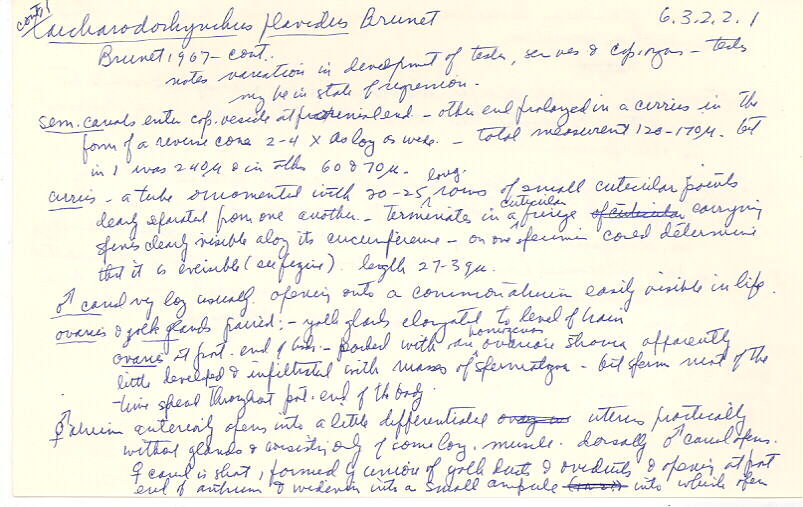 cont! Carcharodorhynchus flavidus Brunet 6.3.2.2.1
Brunet 1967 – cont.
notes variation in development of testes, sem ves & cop. organ – testes
may be in state of regression.
sem. canals enter cop. vesicle at proximal end – other end prolonged in a cirrus in the
form of a reverse cone 2-4 X as long as wide. – total measurement 120-170µ. but
in 1 was 240µ & in others 60 & 70µ.
cirrus – a tube ornamented with 20-25 long. rows of small cuticular points
clearly separated from one another. – Terminates in a cuticular fringe of cuticular carrying
spines clearly visible along its circumference – on one specimen could determine
that it is eversible (see figure). length 27-39µ.
♂ canal very long usually. opening into a common atrium easily visible in life.
ovaries & yolk glands paired: – yolk glands elongated to level of brain
ovaries at post. end of body. – packed with an homogenous ovarian stroma apparently
little developed & infiltrated with masses of spermatozoa – but sperm most of the
time spread throughout post. end of the body.
♂♀ atrium anteriorly opens into a little differentiated uterus practically
without glands & consisting only of some long. muscle. dorsally ♂ canal opens.
♀ canal is short, formed by union of yolk ducts & oviducts & opening at post
end of antrum & widened into a small ampule into which open